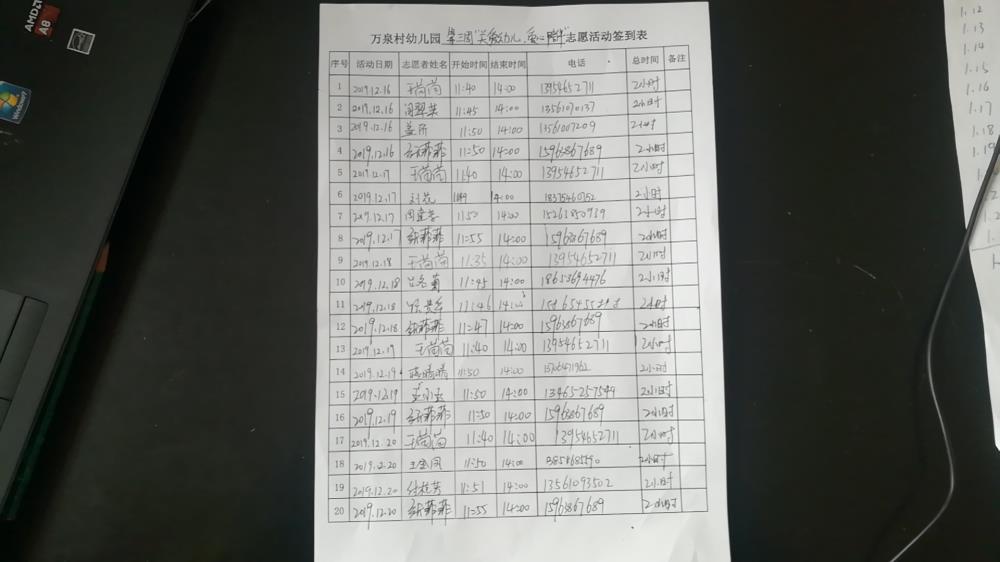 AMDZ
A8
Windows 7
万泉村幼儿园第三周"关爱幼儿、爱心陪伴"志愿活动签到表
序号 活动日期 志愿者姓名 开始时间 结束时间 电话 总时间 备注
1 2019.12.16 王茵茵 11:40 14:00 13954652711 2小时
2 2019.12.16 11:45 14:00 13561070137 2小时
3 2019.12.16 11:50 14:00 13561007209 2小时
4 2019.12.16 菲菲 11:50 14:00 15963867689 2小时
5 2019.12.17 王茵茵 11:40 14:00 13954652711 2小时
6 2019.12.17 14:00 18375460752 2小时
7 2019.12.17 11:50 14:00 15263850939 2小时
8 2019.12.17 菲菲 11:55 14:00 15963867689 2小时
9 2019.12.18 王茵茵 11:35 14:00 13954652711 2小时
10 2019.12.18 11:45 14:00 18653694476 2小时
11 2019.12.18 11:46 2小时
12 2019.12.18 菲菲 11:47 14:00 15963867689 2小时
13 2019.12.19 王茵茵 11:40 14:00 13954652711 2小时
14 2019.12.19 晴晴 11:50 14:00 2小时
15 2019.12.19 11:50 14:00 13465257544 2小时
16 2019.12.19 菲菲 11:50 14:00 15963867689 2小时
17 2019.12.20 王茵茵 11:40 14:00 13954652711 2小时
18 11:50 14:00 2小时
19 2019.12.20 11:51 14:00 13561093502 2小时
20 2019.12.20 菲菲 11:55 14:00 15963867689 2小时
1.12
1.13
1.14
1.15
1.16
1.17
1.18
1.19